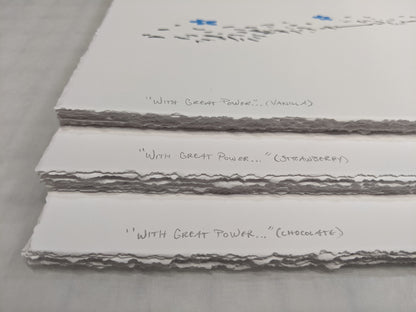 "WITH GREAT POWER..." (VANILLA)
"WITH GREAT POWER..." (STRAWBERRY)
"WITH GREAT POWER..." (CHOCOLATE)